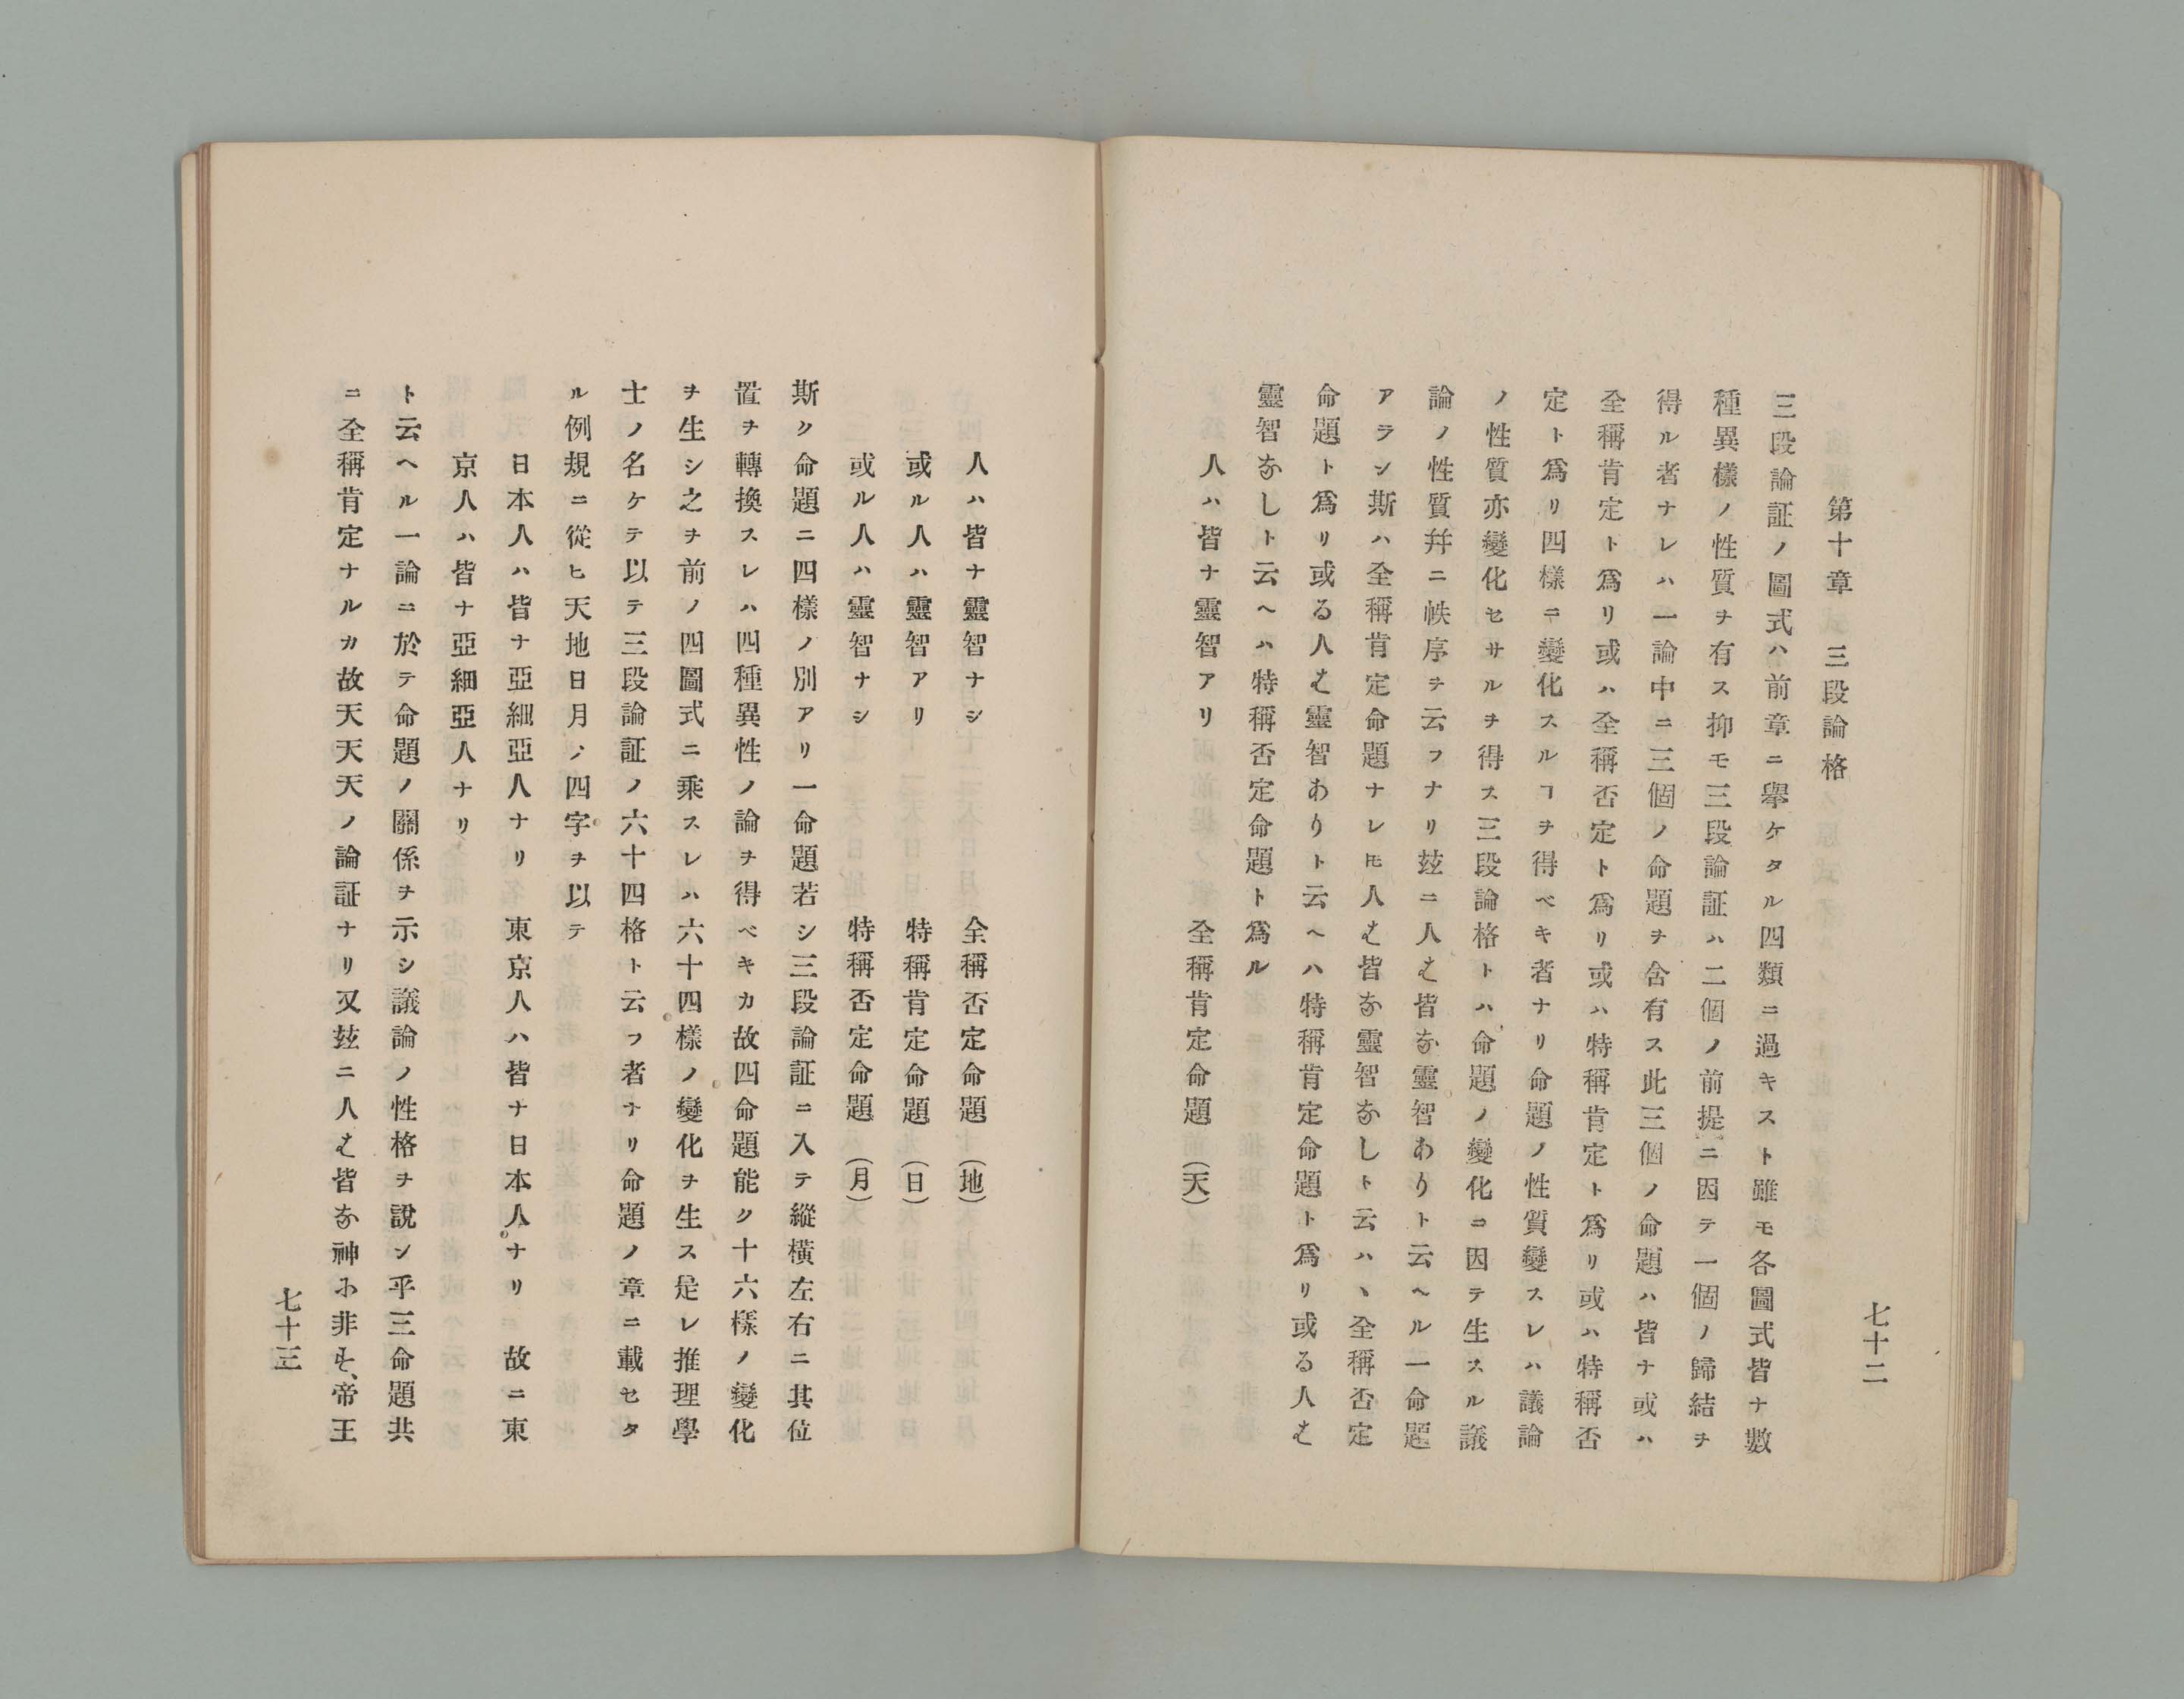 七十二
第十章　三段論格
三段論証ノ圖式ハ前章ニ擧ケタル四類ニ過キスト雖モ各圖式皆ナ數
種異樣ノ性質ヲ有ス抑モ三段論証ハ二個ノ前提ニ因テ一個ノ歸結ヲ
得ル者ナレハ一論中ニ三個ノ命題ヲ含有ス此三個ノ命題ハ皆ナ或ハ
全稱肯定ト爲リ或ハ全稱否定ト爲リ或ハ特稱肯定ト爲リ或ハ特稱否
定ト爲リ四樣ニ變化スルヿヲ得ベキ者ナリ命題ノ性質變スレハ議論
ノ性質亦變化セサルヲ得ス三段論格トハ命題ノ變化ニ因テ生スル議
論ノ性質幷ニ帙序ヲ云フナリ玆ニ人は皆な靈智ありト云ヘル一命題
アラン斯ハ全稱肯定命題ナレ𪜈人は皆な靈智なしト云ハヽ全稱否定
命題ト爲リ或る人は靈智ありト云ヘハ特稱肯定命題ト爲リ或る人は
靈智なしト云ヘハ特稱否定命題ト爲ル
人ハ皆ナ靈智アリ　全稱肯定命題　（天）
人ハ皆ナ靈智ナシ　全稱否定命題　（地）
或ル人ハ靈智アリ　特稱肯定命題　（日）
或ル人ハ靈智ナシ　特稱否定命題　（月）
斯ク命題ニ四樣ノ別アリ一命題若シ三段論証ニ入テ縱橫左右ニ其位
置ヲ轉換スレハ四種異性ノ論ヲ得ベキカ故四命題能ク十六樣ノ變化
ヲ生シ之ヲ前ノ四圖式ニ乘スレハ六十四樣ノ變化ヲ生ス是レ推理學
士ノ名ケテ以テ三段論証ノ六十四格ト云フ者ナリ命題ノ章ニ載セタ
ル例規ニ從ヒ天地日月ノ四字ヲ以テ
日本人ハ皆ナ亞細亞人ナリ　東京人ハ皆ナ日本人ナリ　故ニ東
京人ハ皆ナ亞細亞人ナリ
ト云ヘル一論ニ於テ命題ノ關係ヲ示シ議論ノ性格ヲ說ン乎三命題共
ニ全稱肯定ナルカ故天天天ノ論証ナリ又玆ニ人は皆な神に非す、帝王
七十三